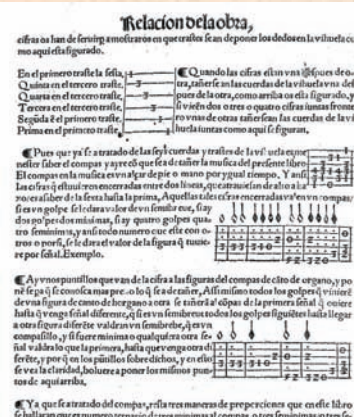 Relacion dela obra,
cifras os han de seruir a mostraros en que trastes se an de poner los dedos en la vihuela co
mo aqui esta figurado.
En el primero traste la sesta,
Quinta en el tercero traste,
Quarta en el tercero traste,
Tercera en el tercero traste,
Segũda ẽl primero traste,
Prima en el primero traste,
¶ Quando las cifras estan vna đspues de o-
tra, tañerse an las cuerdas de la vihuela vna des
pues de la otra, como arriba os esta figurado, y
si viẽ dos o tres o quatro cifras juntas fronte
ro vnas de otras tañersean las cuerdas de la vi
huela juntas como aqui se figuran,
¶ Pues que ya se a tratado de las seys cuerdas y trastes de la vihuela es me
nester saber el compas y ayre cõ que se a de tañer la musica del presente libro
El compas en la musica es vn alçar de pie o mano por ygual tiempo. Y ansi
las cifras q̃ estuuierẽ encerradas entre dos lineas, que atrauiesan de alto a ba
xo sera saber de la sexta hasta la prima, Aquellas tales cifras encerradas valen vn compas,
si es vn golpe se le dara valor de vn semibreue, si ay
dos golpes dos minimas, si ay quatro golpes qua-
tro seminimas, y ansi todo numero que este con o-
tros o por si, se le dara el valor de la figura q̃ tuuie-
re por señal. Exemplo.
¶ Ay vnos puntillos que van de la cifra a las figuras del compas de cãto de organo, y po
nẽse pa q̃ se conosca mas presto lo q̃ se a de tañer, Assimismo todos los golpes q̃ vinierẽ
de vna figura de canto de horgano a otra se tañerã al cõpas de la primera señal q̃ ouiere
hasta q̃ venga señal diferente, q̃ si es vn semibreue todos los golpes siguiẽtes hasta llegar
a otra figura diferẽte valdran vn semibrebe, q̃ es vn
compasillo, y si fuere minima o qualquiera otra se-
ñal valdra lo que la primera, hasta que venga otra di
ferẽte, y por q̃ en los pũtillos sobre dichos, y en esto
se vea la claridad, boluere a poner los mismos pun-
tos de aqui arriba,
¶ Ya que se a tratado del compas, resta tres maneras de proporciones que en este libro
se hallaran que es numero ternario de tres minimas al compas, o tres seminimas